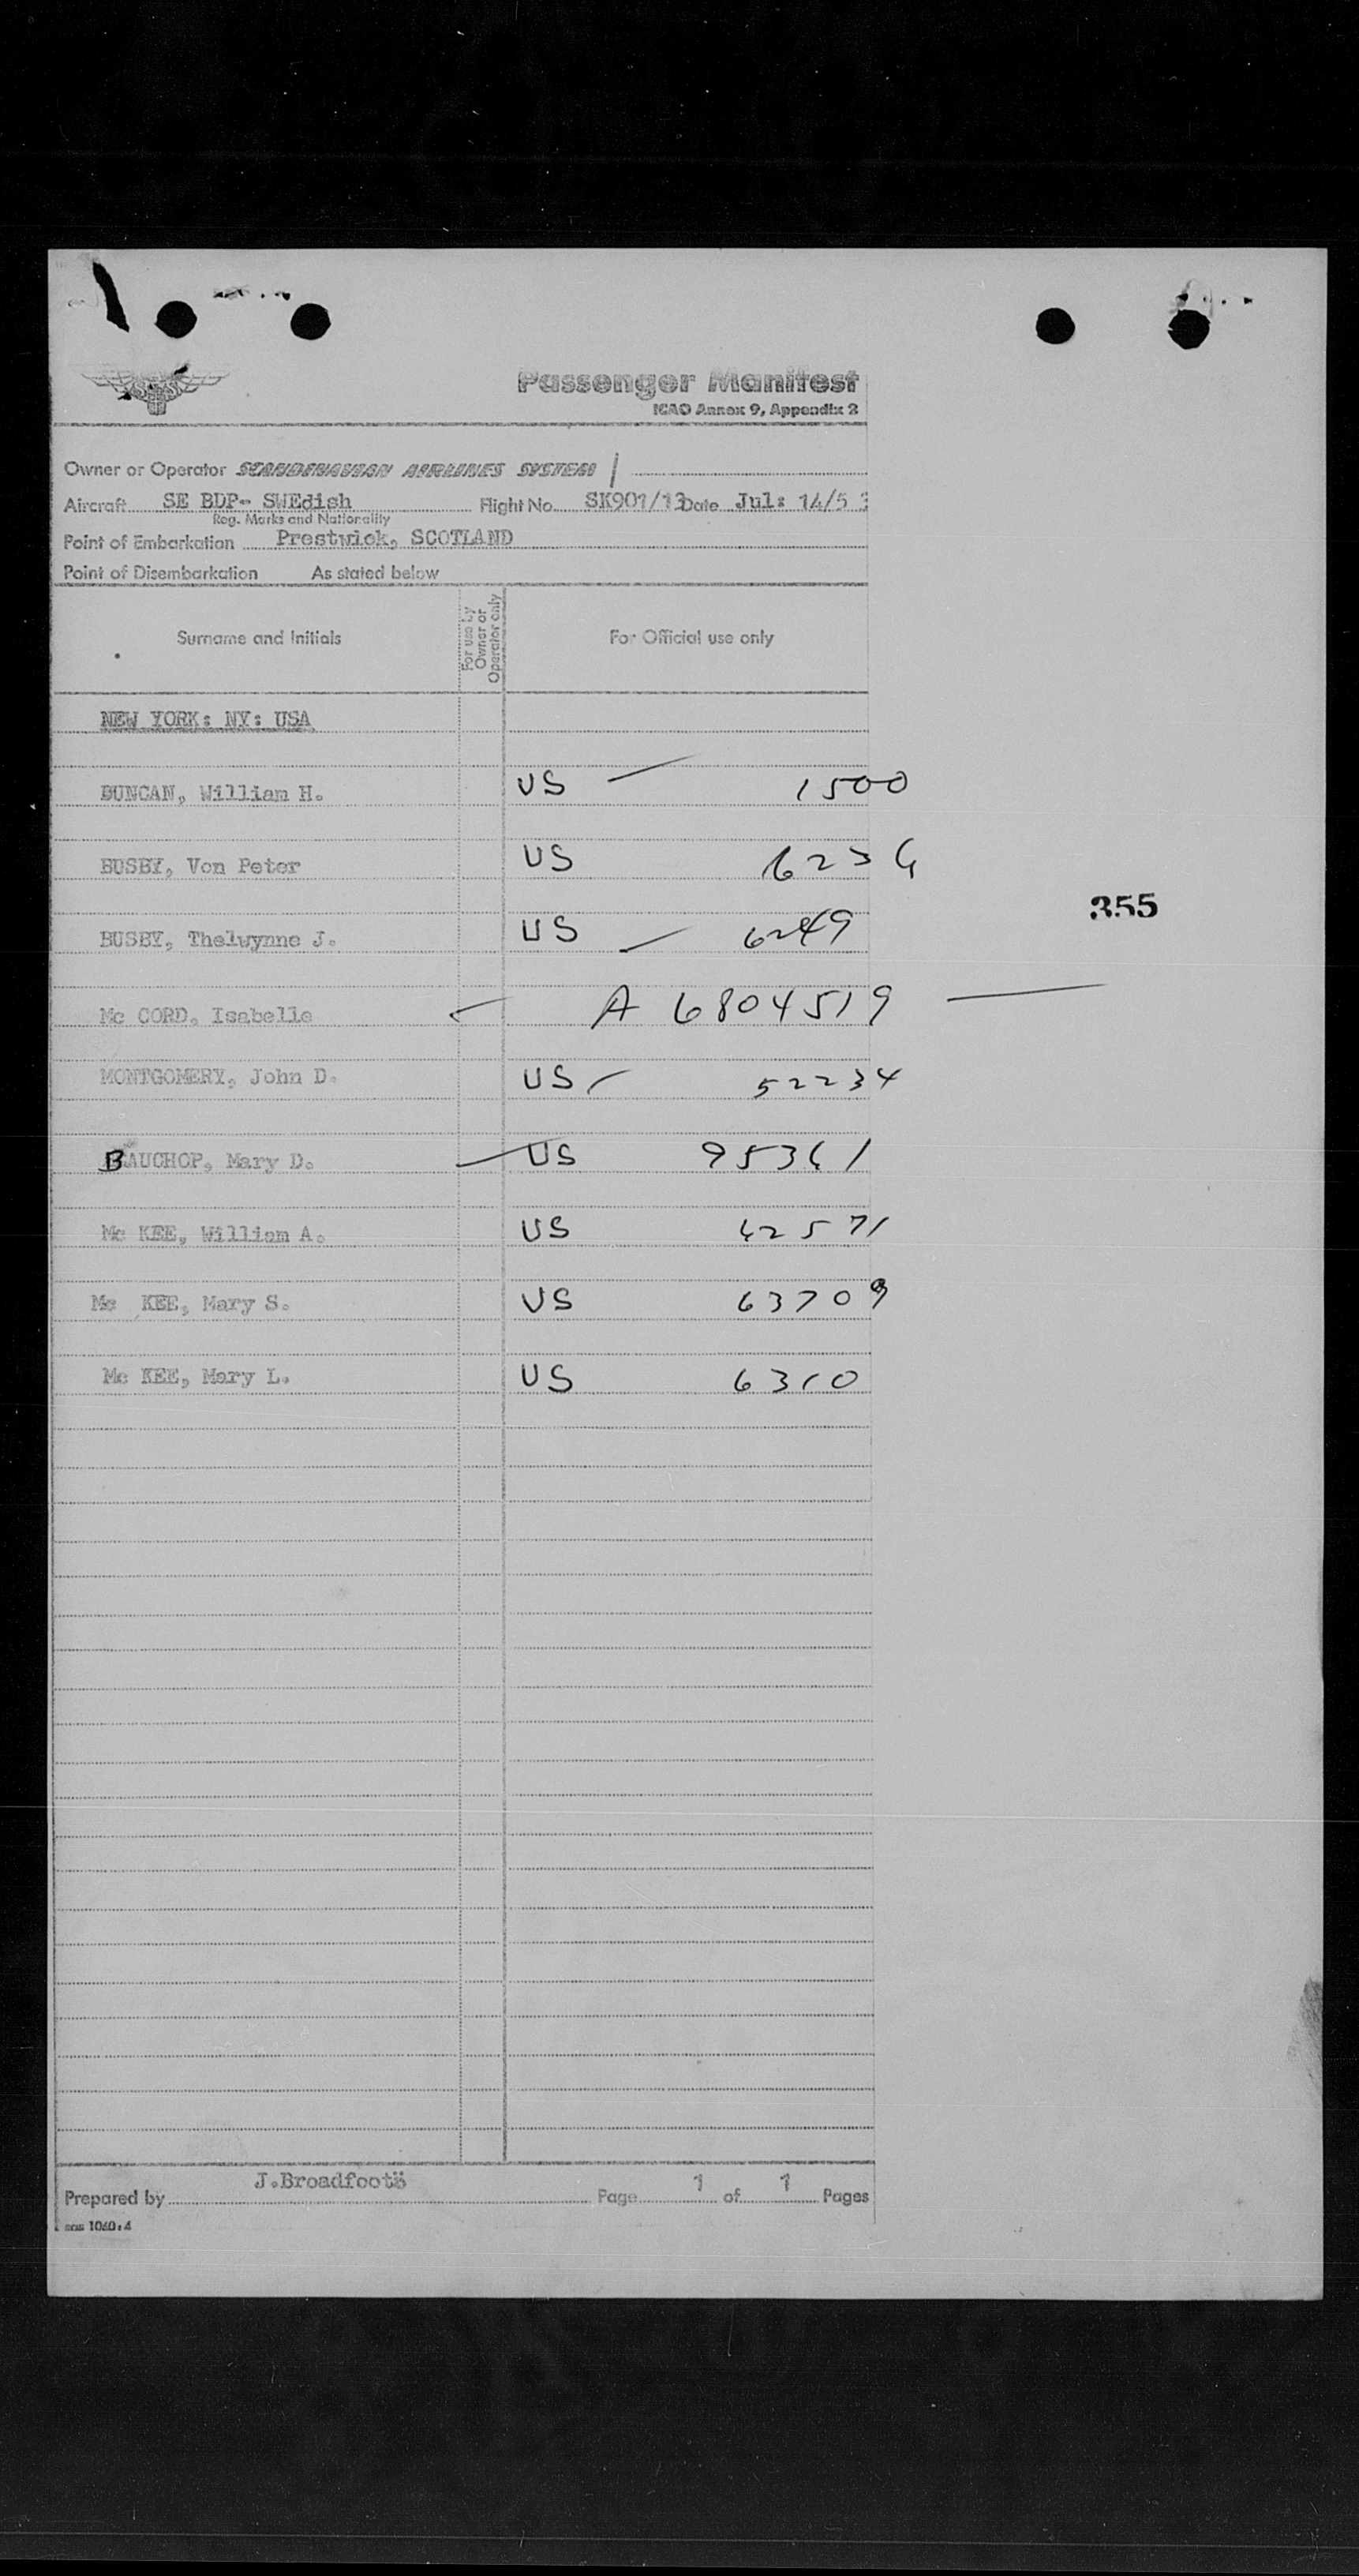 Passenger Manifest
ICAO Annex 9, Appendix 2
Owner or Operator SCANDINAVIAN AIRLINES SYSTEM
Aircraft SE BDP- SWEdish Flight No. SK901/13 Date Jul: 14/53
Reg. Marks and Nationality
Point of Embarkation Prestwick, SCOTLAND
Point of Disembarkation As stated below
Surname and Initials For use by Owner or Operator only For Official use only
NEW YORK: NY: USA
DUNCAN, William H. US 1500
BUSBY, Von Peter US
BUSBY, Thelwynne J. US 6249
355
Mc CORD, Isabelle A 6804519
MONTGOMERY, John D. US 52234
BAUCHOP, Mary D. US 95361
Mc KEE, William A. US 62571
Mc KEE, Mary S. US 63709
Mc KEE, Mary L. US 6310
J.Broadfoot
Prepared by Page 1 of 1 Pages
sas 1060:4